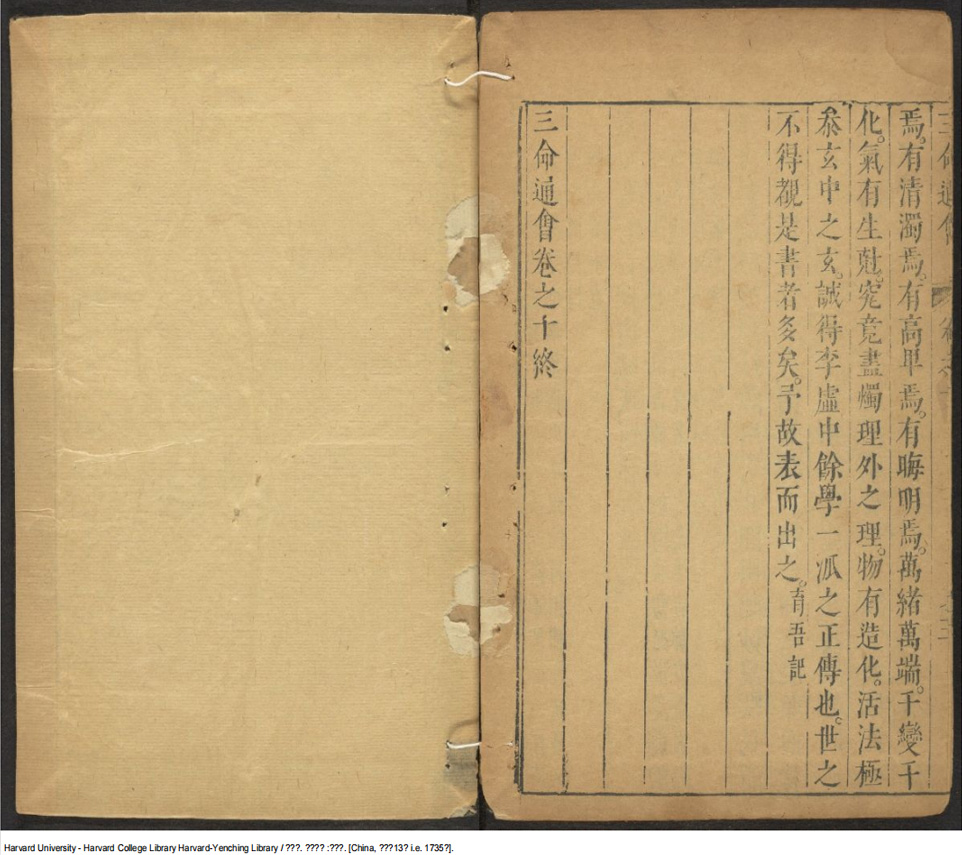 三命通會
焉。有清濁焉。有高卑焉。有晦明焉。萬緒萬端。千變千
化。氣有生尅。究竟盡燭理外之理。物有造化。活法極
叅玄中之玄。誠得李虛中餘學一派之正傳也。世之
不得覩是書者多矣。予故表而出之。育吾記
三命通會卷之十終
Harvard University - Harvard College Library Harvard-Yenching Library / ???. ???? :???. [China, ???13? i.e. 1735?].